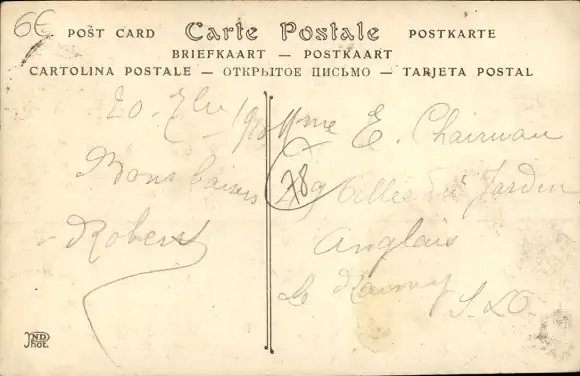 6€
POST CARD Carte Postale POSTKARTE
BRIEFKAART — POSTKAART
CARTOLINA POSTALE — ОТКРЫТОЕ ПИСЬМО — TARJETA POSTAL
Mme E. Chairman
Bons baisers
Robert
789
du Jardin
Anglais
Le Raincy
S. & O.
ND
Phot.